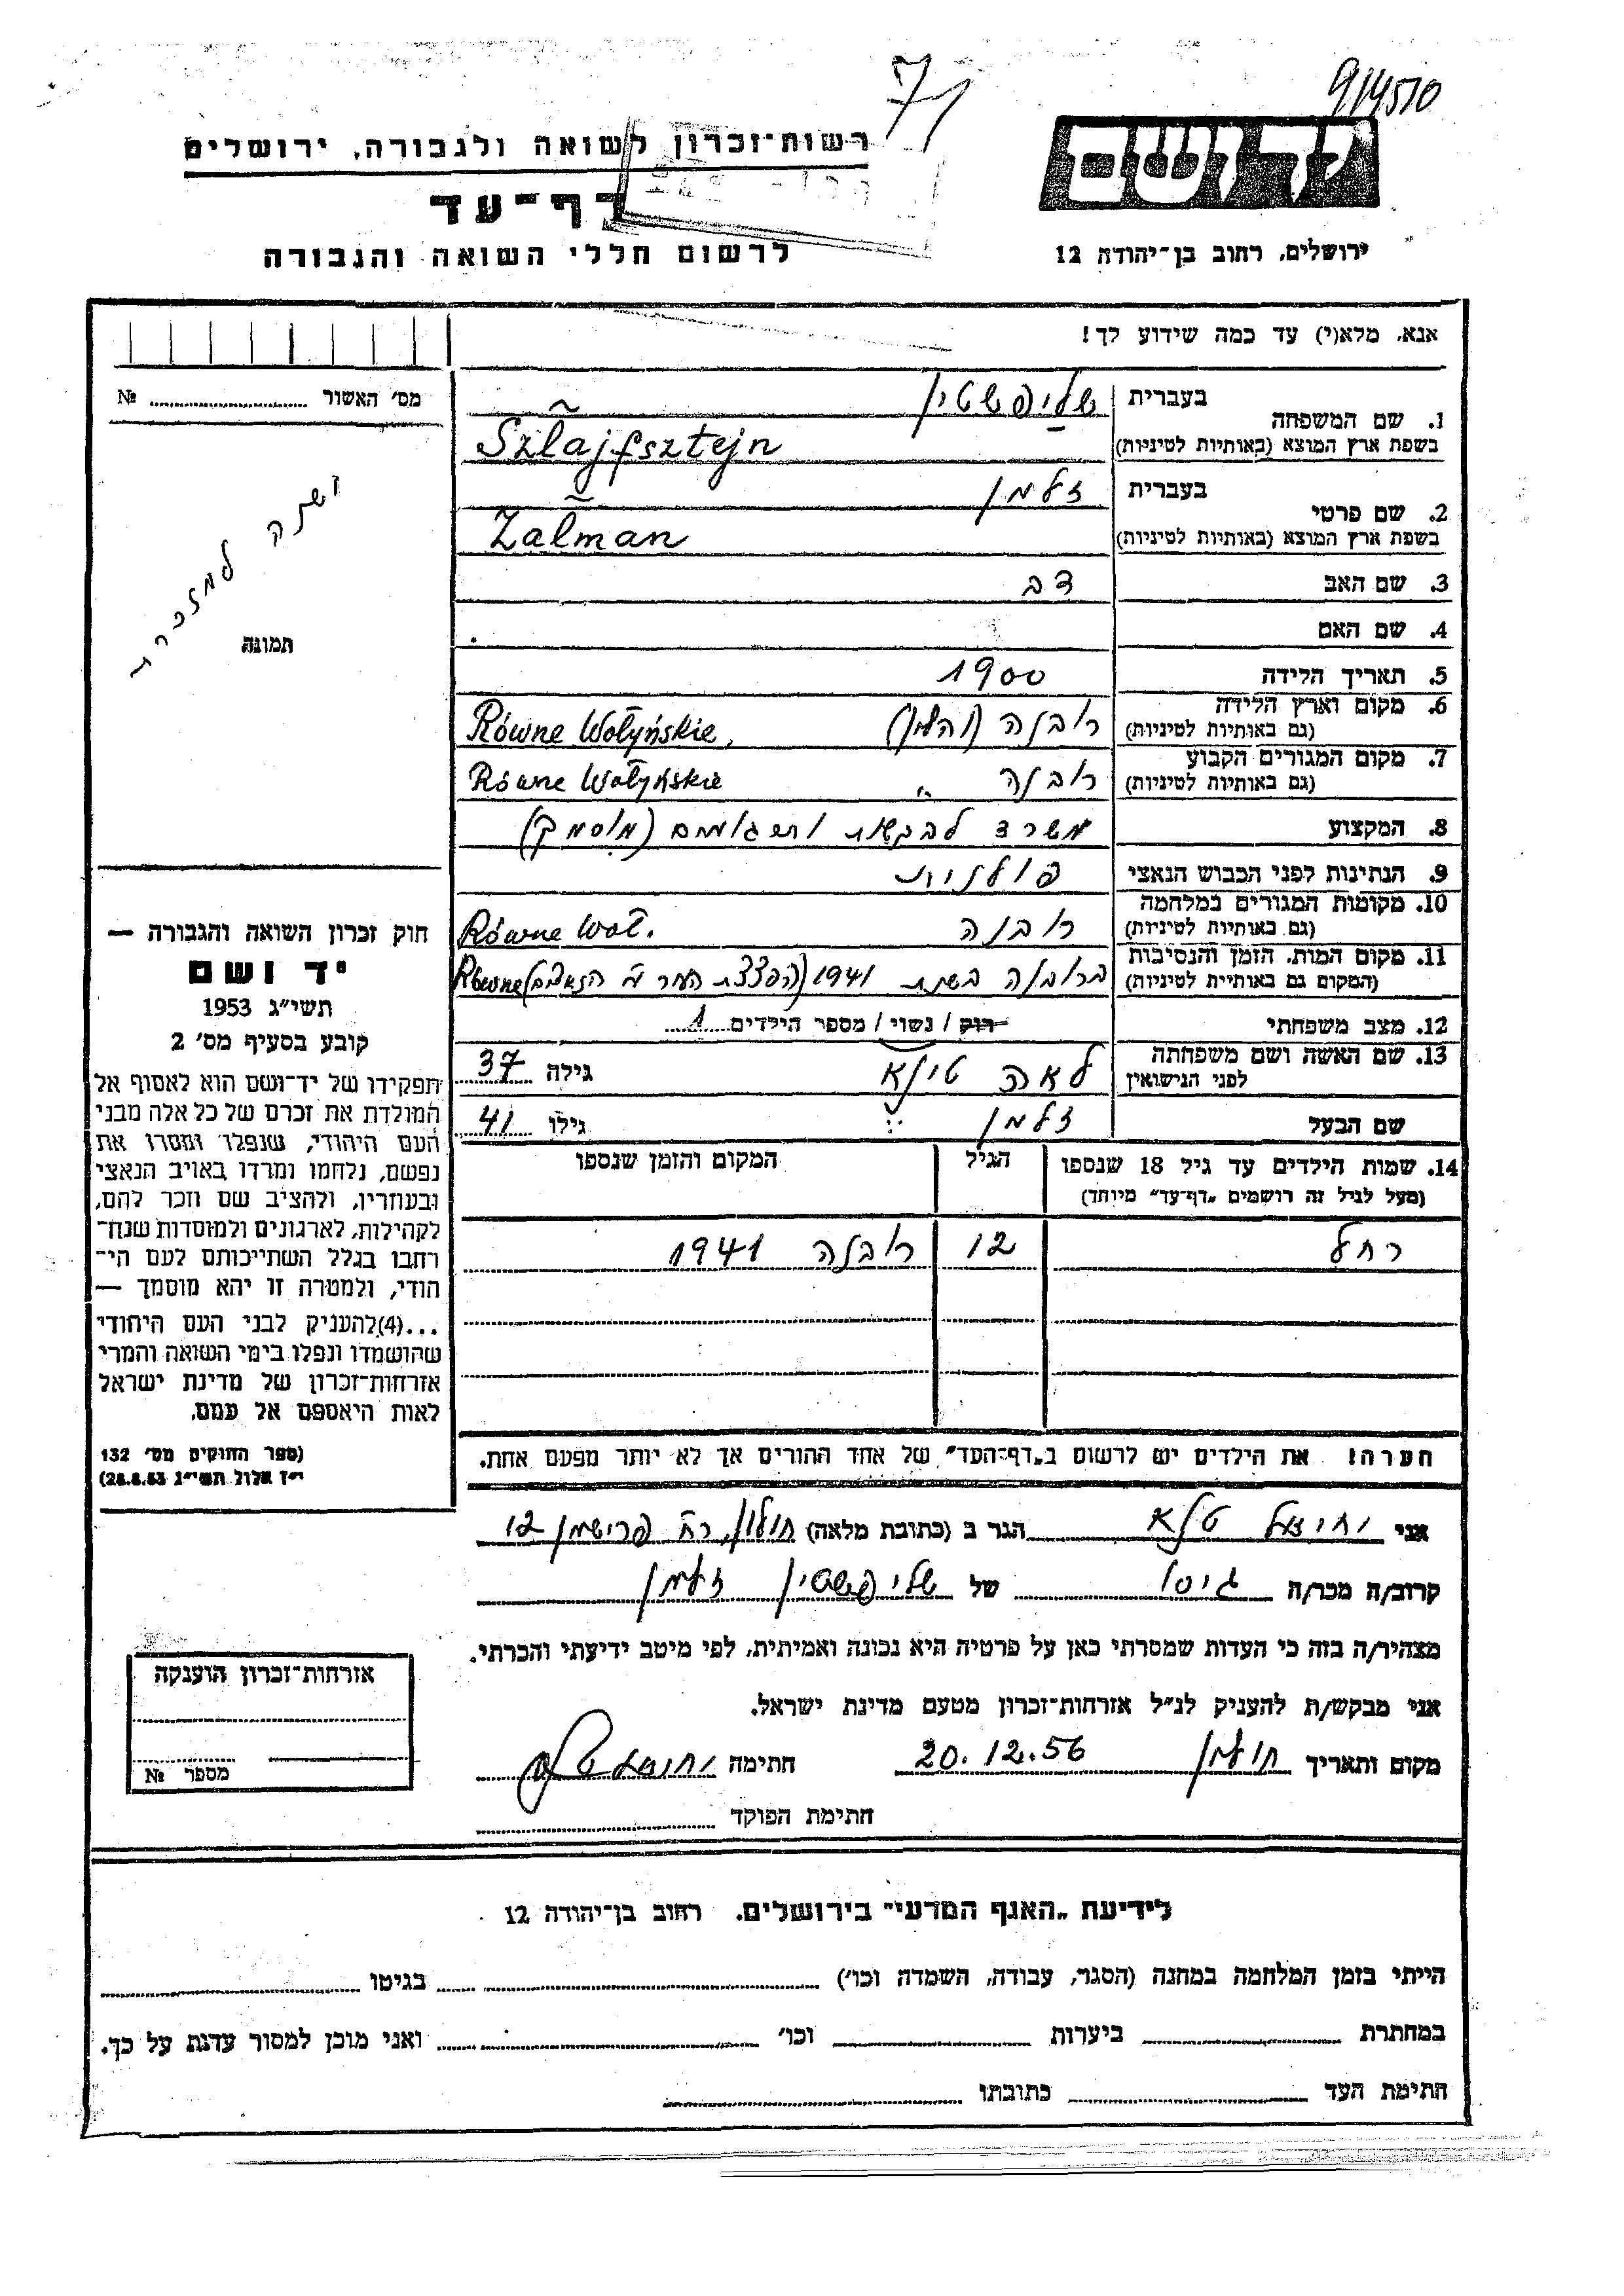 71
914510
רשות־זכרון לשואה ולגבורה, ירושלים
דף־עד
לרשום חללי השואה והגבורה
יד ושם
ירושלים, רחוב בן־יהודה 12
אנא, מלא(י) עד כמה שידוע לך!
מס׳ האשור № 
1. שם המשפחה בעברית שלייפשטיין
בשפת ארץ המוצא (באותיות לטיניות) Szlajfsztejn
2. שם פרטי בעברית זלמן
בשפת ארץ המוצא (באותיות לטיניות) Zalman
3. שם האב דב
4. שם האם
5. תאריך הלידה 1900
6. מקום וארץ הלידה (גם באותיות לטיניות) רובנה (ווהלין) Równe Wołyńskie,
7. מקום המגורים הקבוע (גם באותיות לטיניות) רובנה " Równe Wołyńskie
8. המקצוע משרד לבקשות ותרגומים (מוסמך)
9. הנתינות לפני הכבוש הנאצי פולנית
10. מקומות המגורים במלחמה (גם באותיות לטיניות) רובנה Równe Woł.
11. מקום המות, הזמן והנסיבות (המקום גם באותיית לטיניות) ברובנה בשנת 1941 (הפצצת העיר ע״י הנאצים) Równe
12. מצב משפחתי רווק / נשוי / מספר הילדים 1
13. שם האשה ושם משפחתה לפני הנישואין לאה טילא גילה 37
שם הבעל זלמן גילו 41
14. שמות הילדים עד גיל 18 שנספו (מעל לגיל זה רושמים „דף־עד״ מיוחד) הגיל המקום והזמן שנספו
רחל 12 רובנה 1941
הערה! את הילדים יש לרשום ב„דף־העד״ של אחד ההורים אך לא יותר מפעם אחת.
תמונה
חוק זכרון השואה והגבורה —
יד ושם
תשי״ג 1953
קובע בסעיף מס׳ 2
תפקידו של יד־ושם הוא לאסוף אל
המולדת את זכרם של כל אלה מבני
העם היהודי, שנפלו ומסרו את
נפשם, נלחמו ומרדו באויב הנאצי
ובעוזריו, ולהציב שם וזכר להם,
לקהילות, לארגונים ולמוסדות שנח־
רבו בגלל השתייכותם לעם הי־
הודי, ולמטרה זו יהא מוסמך —
...(4)להעניק לבני העם היהודי
שהושמדו ונפלו בימי השואה והמרי
אזרחות־זכרון של מדינת ישראל
לאות היאספם אל עמם.
(ספר החוקים מס׳ 132
י״ז אלול תשי״ג 28.8.53)
אני יחיאל טילא הגר ב (כתובת מלאה) חולון, רח׳ פרישמן 12
קרוב/ה מכר/ה גיסו של שלייפשטיין זלמן
מצהיר/ה בזה כי העדות שמסרתי כאן על פרטיה היא נכונה ואמיתית, לפי מיטב ידיעתי והכרתי.
אני מבקש/ת להעניק לנ״ל אזרחות־זכרון מטעם מדינת ישראל.
מקום ותאריך חולון 20.12.56 חתימה
חתימת הפוקד
אזרחות־זכרון הוענקה
מספר №
לידיעת „האגף המדעי״ בירושלים, רחוב בן־יהודה 12.
הייתי בזמן המלחמה במחנה (הסגר, עבודה, השמדה וכו׳) בגיטו
במחתרת ביערות וכו׳ ואני מוכן למסור עדות על כך.
חתימת העד כתובתו